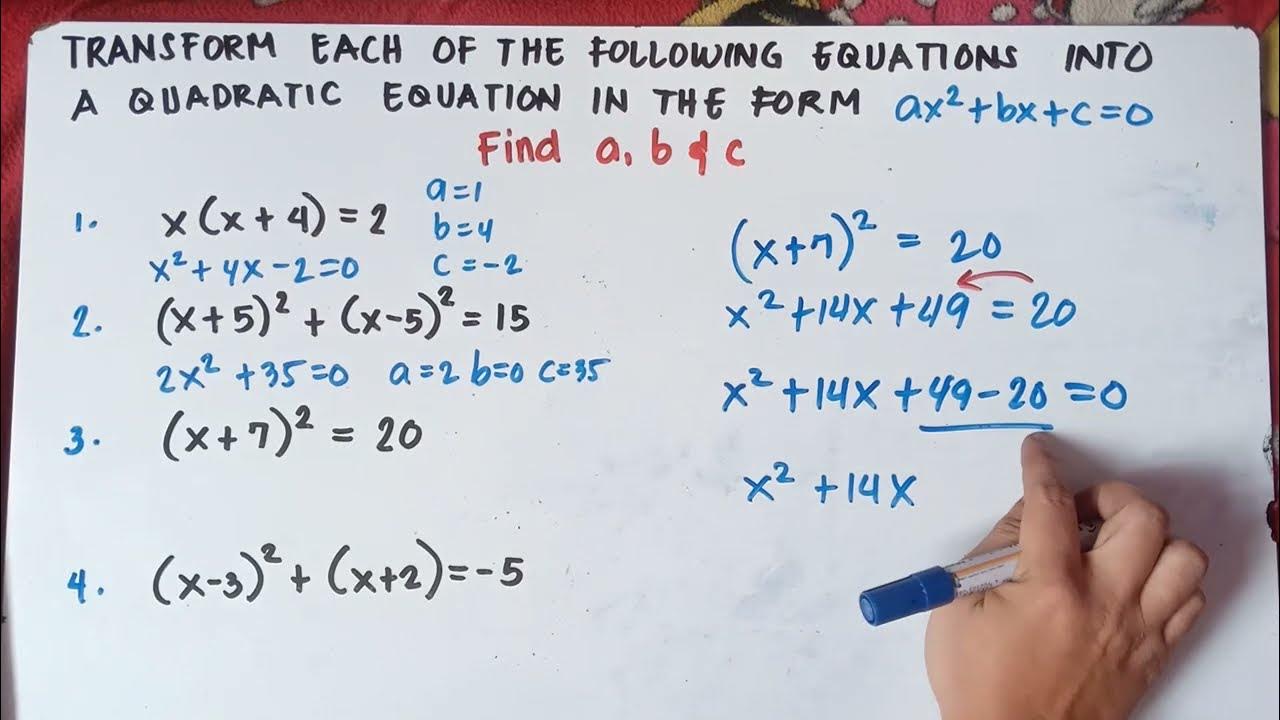 TRANSFORM EACH OF THE FOLLOWING EQUATIONS INTO
A QUADRATIC EQUATION IN THE FORM ax²+bx+c=0
Find a, b & c
1. x(x+4)=2
a=1
b=4
x²+4x-2=0 c=-2
2. (x+5)²+(x-5)²=15
2x²+35=0 a=2 b=0 c=35
3. (x+7)²=20
4. (x-3)²+(x+2)=-5
(x+7)²=20
x²+14x+49=20
x²+14x+49-20=0
x²+14x